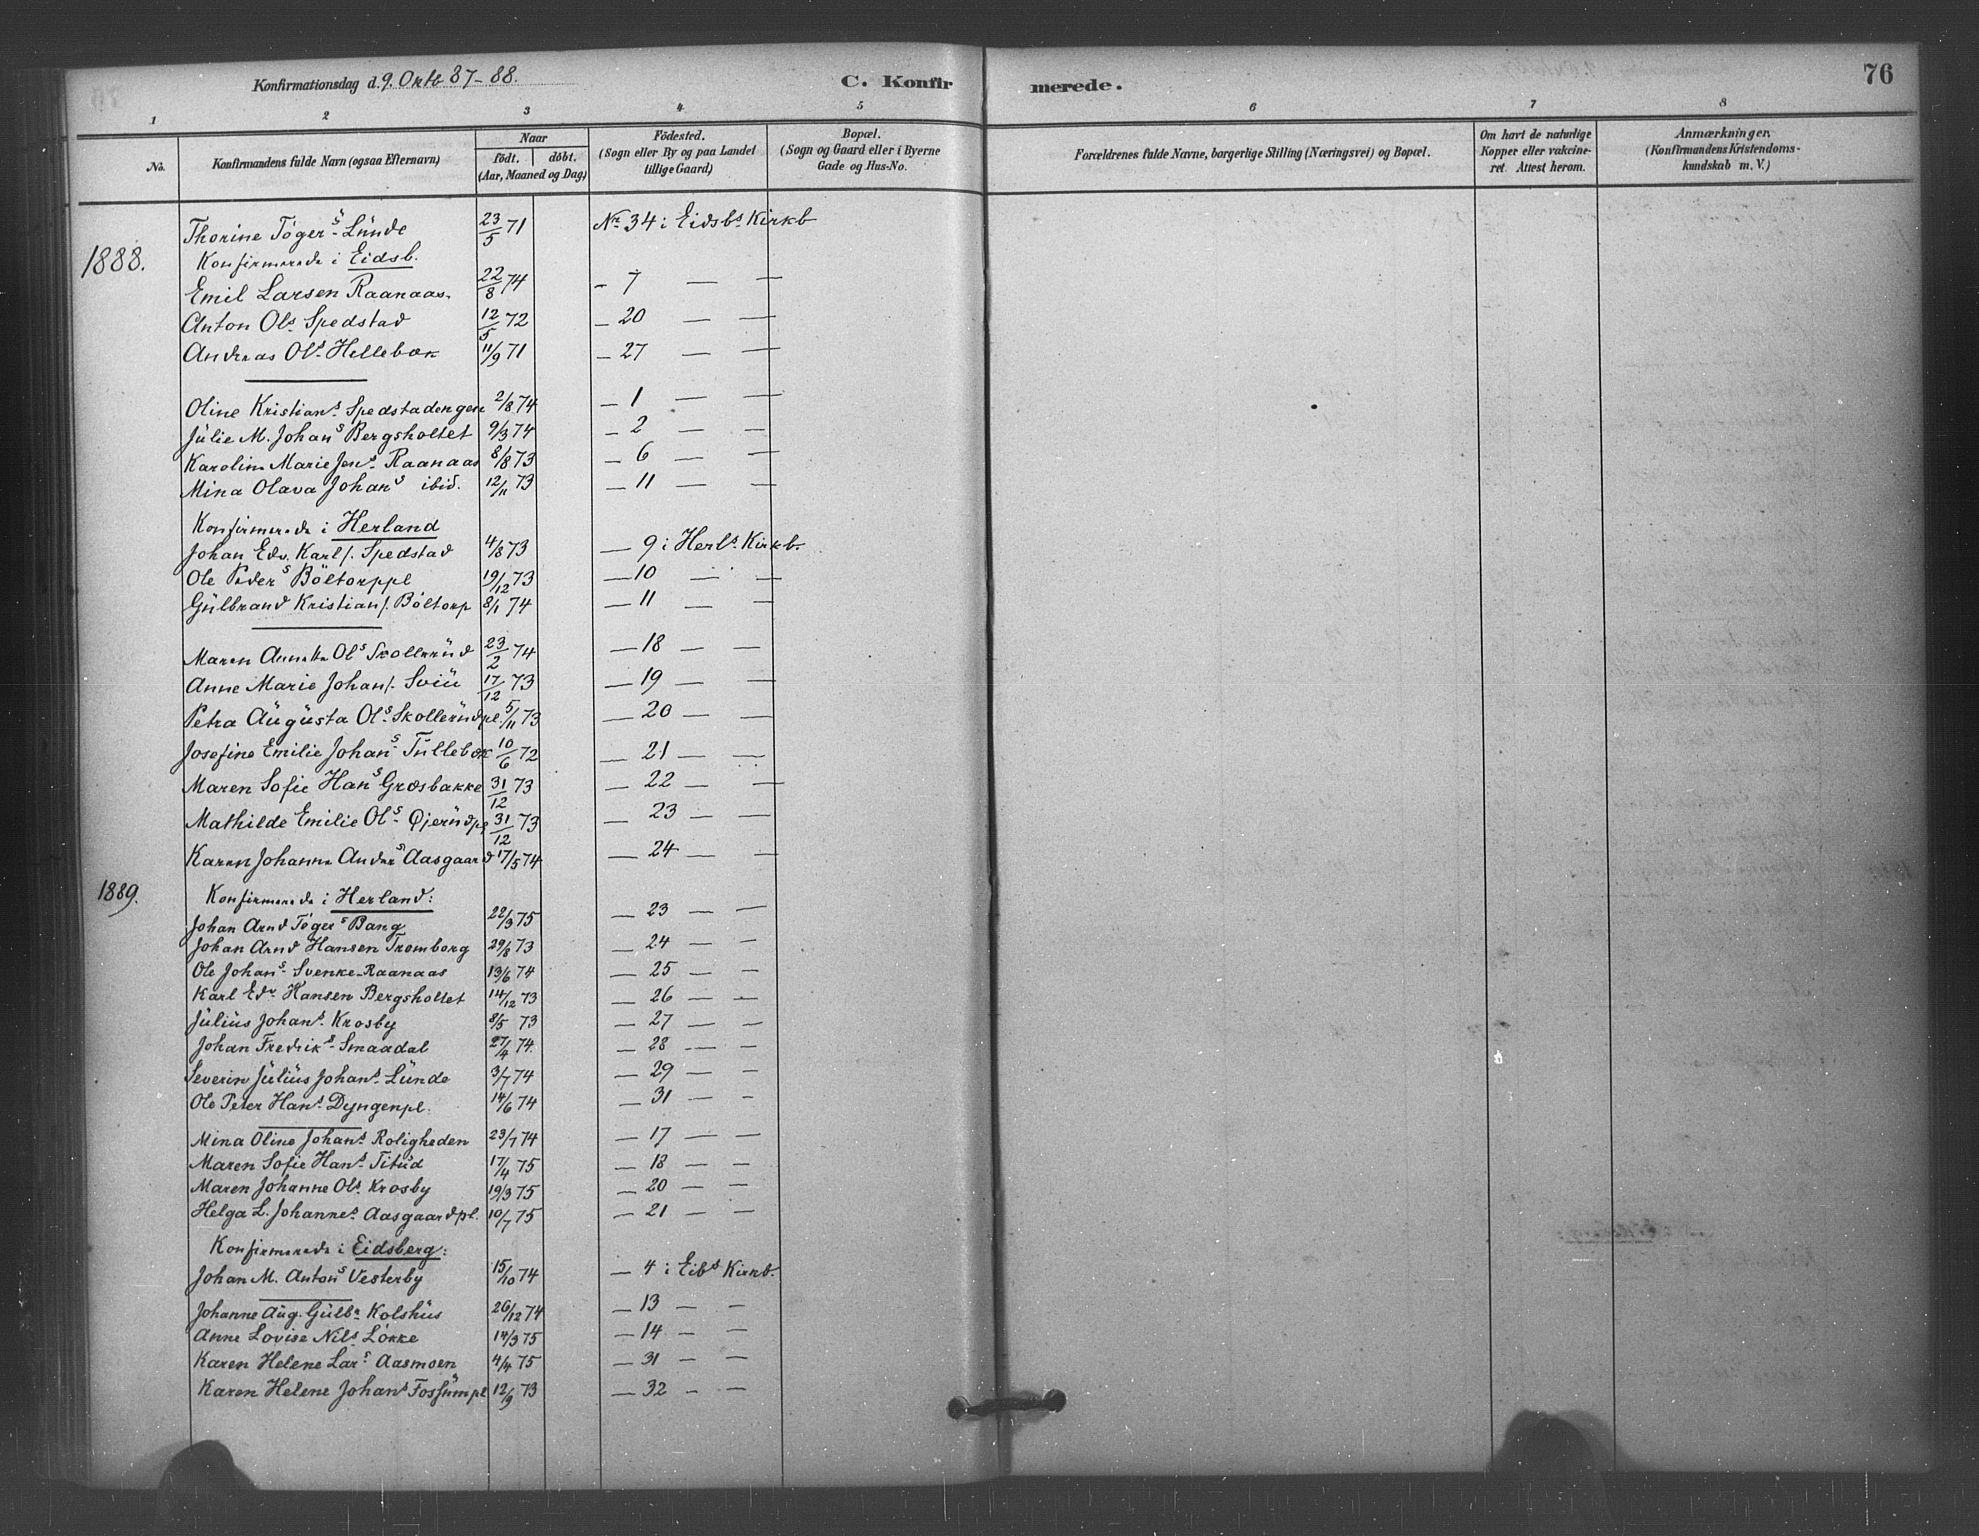 Konfirmationsdag d. 9. Oktb 87-88.
C. Konfirmerede.
76
1 2 3 4 5 6 7 8
No.
Konfirmandens fulde Navn (ogsaa Efternavn)
Naar
födt. döbt.
(Aar, Maaned og Dag)
Födested.
(Sogn eller By og paa Landet
tillige Gaard)
Bopæl.
(Sogn og Gaard eller i Byerne
Gade og Hus-No.
Forældrenes fulde Navne, borgerlige Stilling (Næringsvei) og Bopæl.
Om havt de naturlige
Kopper eller vakcine-
ret. Attest herom.
Anmærkninger.
(Konfirmandens Kristendoms-
kundskab m. V.)
Thorine Töger s. Lünde 23/5 71 Nr. 34 i Eidsbs Kirkb
1888. Konfirmerede i Eidsb.
Emil Larsen Raanaas. 22/8 74 - 7 — —
Anton Ols. Spedstad 12/5 72 - 20 — —
Andreas Ols. Hellebæk 11/9 71 - 27 — —
Oline Kristians. Spedstadengen 2/8 74 - 1 — —
Jülie M. Johans Bergsholtet 9/3 74 - 2 — —
Karolin Marie Jens. Raanaas 8/8 73 - 6 — —
Mina Olava Johans ibid. 12/11 73 - 11 — —
Konfirmerede i Herland
Johan Edv. Karls. Spedstad 4/8 73 — 9 i Herls. Kirkb.
Ole Peders Böltorppl 19/12 73 — 10 — —
Gülbrand Kristians. Böltorp 8/1 74 — 11 — —
Maren Annette Ols Skollerüd 23/2 74 — 18 — —
Anne Marie Johans. Sviü 17/12 73 — 19 — —
Petra Aügüsta Ols. Skollerüdpl. 5/11 73 — 20 — —
Josefine Emilie Johans. Tüllebæk 10/6 72 — 21 — —
Maren Sofie Hans Græsbakke 31/12 73 — 22 — —
Mathilde Emilie Ols. Gjerüdpl 31/12 73 — 23 — —
Karen Johanne Anders Aasgaard 17/5 74 — 24 — —
1889. Konfirmerede i Herland:
Johan Arnd Tögers Bang 22/3 75 — 23 — —
Johan Arnd Hansen Tromborg 29/8 73 — 24 — —
Ole Johans. Svenke-Raanaas 13/6 74 — 25 — —
Karl Edv Hansen Bergsholtet 14/12 73 — 26 — —
Jüliüs Johans. Krosby 8/5 73 — 27 — —
Johan Fredriks. Smaadal 27/4 74. — 28 — —
Severin Jüliüs Johans. Lünde 3/7 74 — 29 — —
Ole Peter Hans. Dyngenpl. 14/6 74 — 31 — -
Mina Oline Johans. Roligheden 23/7 74 — 17 — —
Maren Sofie Hans. Titüd 17/4 75 — 18 — —
Maren Johanne Ols. Krosby 19/3 75 — 20 — —
Helga L. Johannes. Aasgaardpl. 10/7 75 — 21 — —
Konfirmerede i Eidsberg:
Johan M. Antons Vesterby 15/10 74 — 4 i Eibs Kirkb.
Johanne Aüg. Gülbr Kolshüs 26/12 74 — 13 — -
Anne Lovise Nils Lökke 14/3 75 — 14 — —
Karen Helene Lars Aasmoen 4/4 75 — 31 — —
Karen Helene Johans Fossümpl 12/9 73 — 32 - —